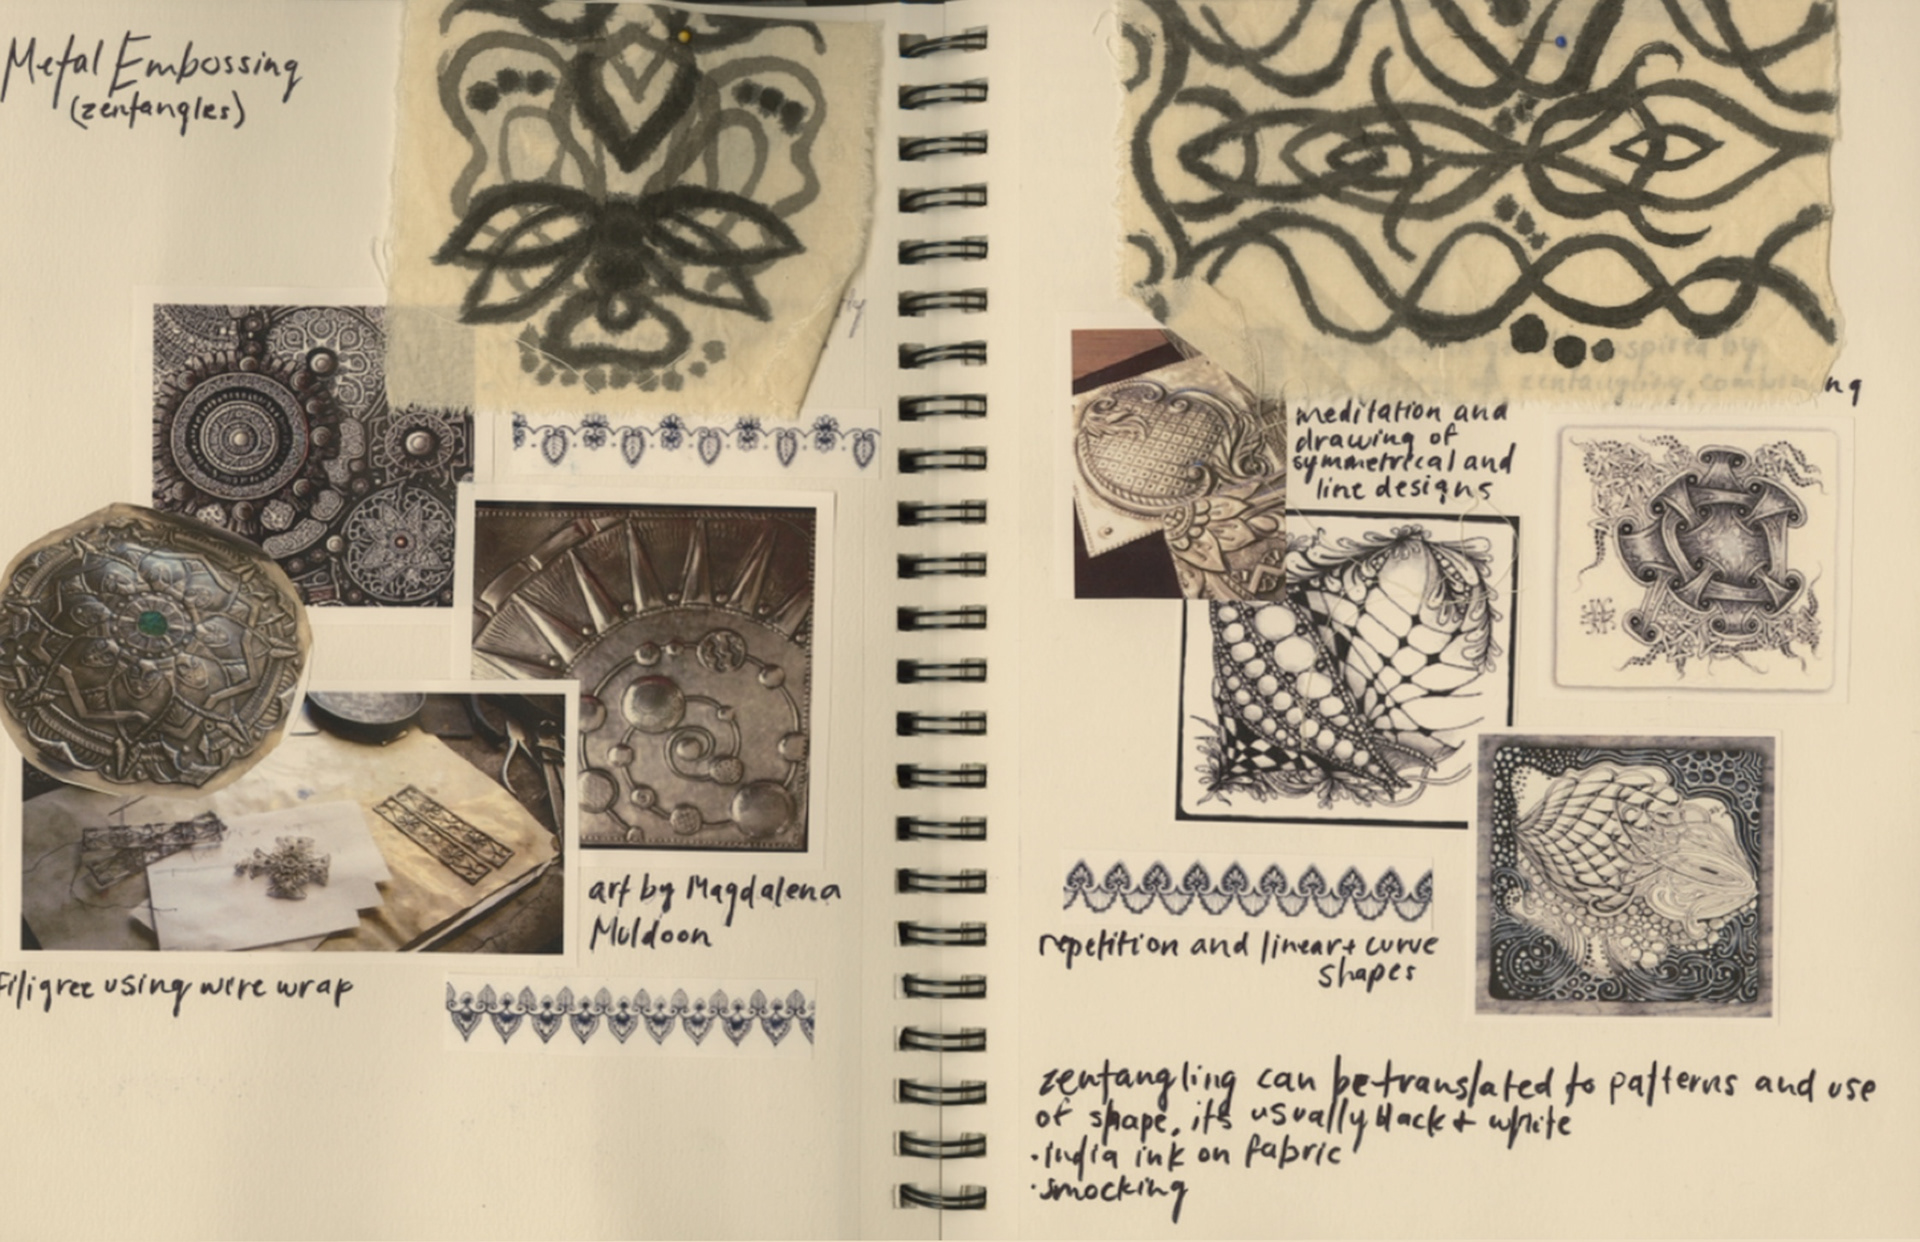 Metal Embossing
(zentangles)
art by Magdalena
Muldoon
Filigree using wire wrap
inspired by
zentangling, combining
meditation and
drawing of
symmetrical and
line designs
repetition and linear + curve
shapes
zentangling can be translated to patterns and use
of shape, its usually black + white
·India ink on fabric
·smocking